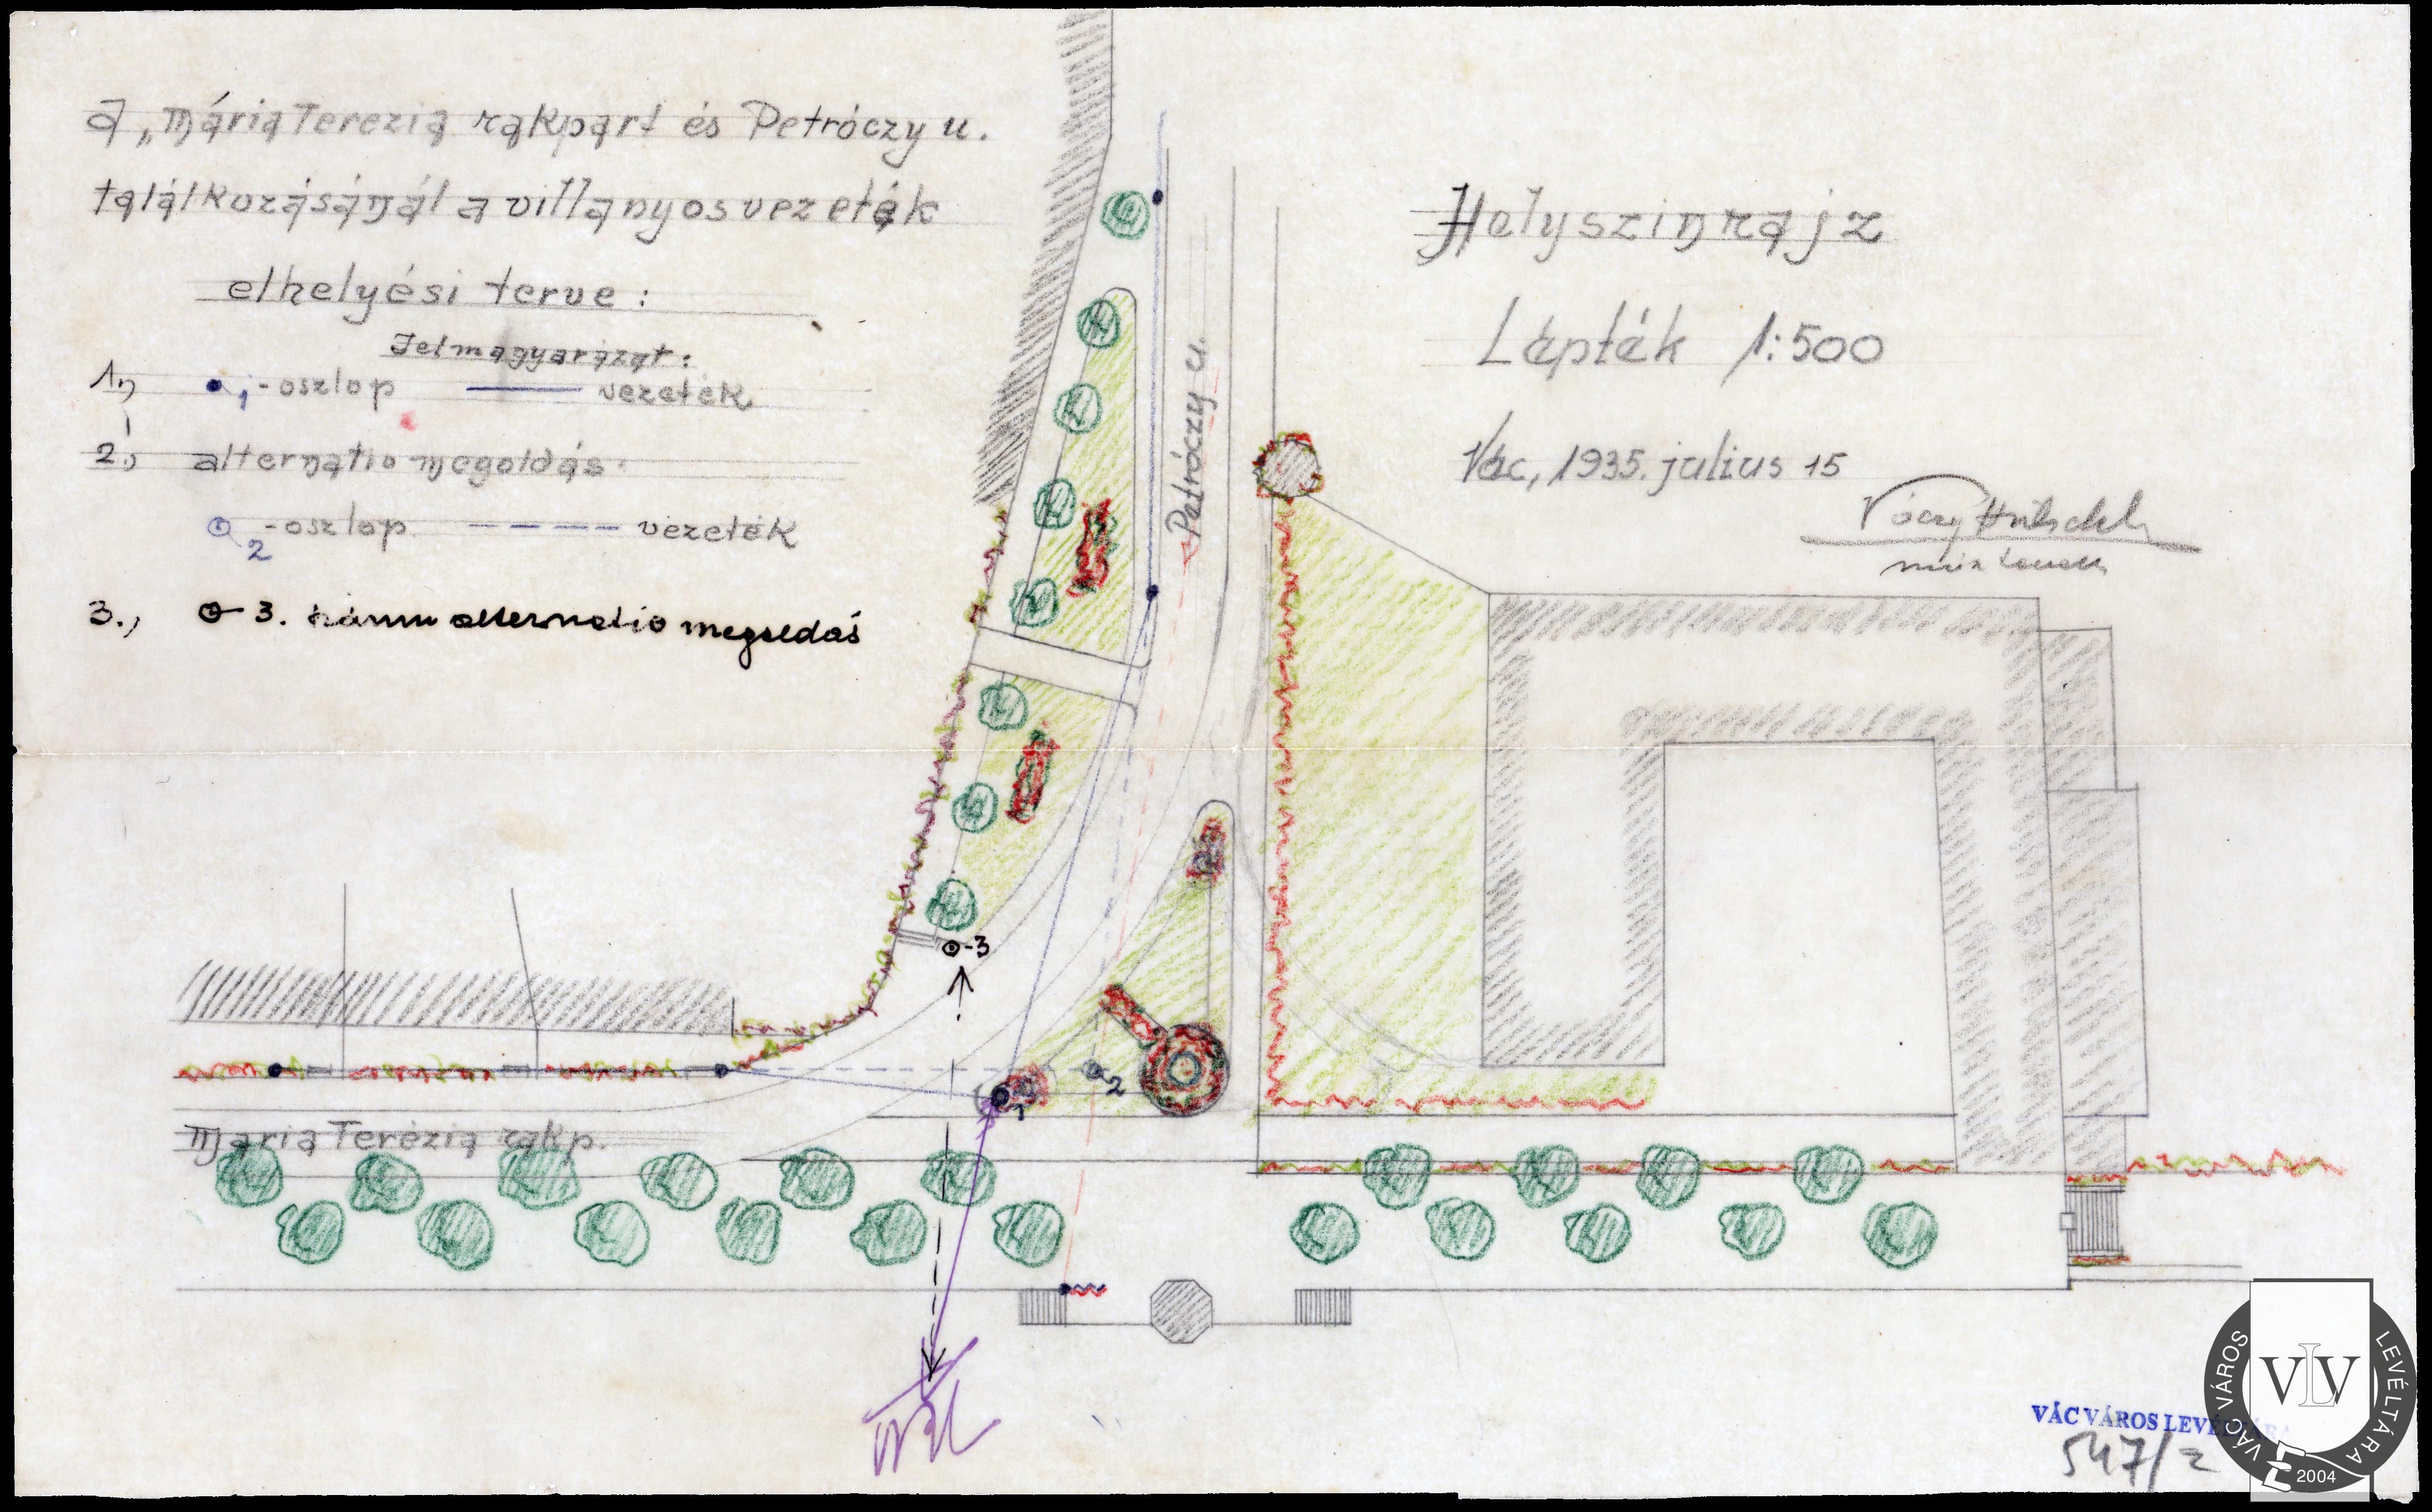 A „Mária Terezia rakpart és Petróczy u.
találkozásánál a villanyosvezeték
elhelyési terve:
Jelmagyarázat:
1.) 1 -oszlop vezeték
2.) alternatio megoldás.
2 -oszlop vezeték
3., 3. alternatio megoldás
Helyszinrajz
Lépték 1:500
Vác, 1935. julius 15
Petróczy u.
3
2
1
Mária Terézia rakp.
VÁC VÁROS
547/2
VÁC VÁROS LEVÉLTÁRA
VLV
2004